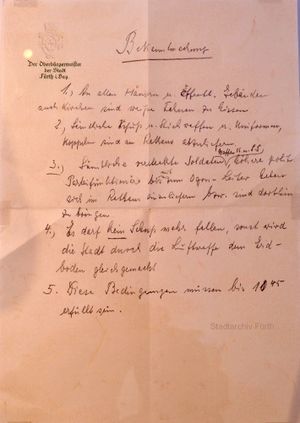 Der Oberbürgermeister
der Stadt
Fürth i. Bay.
Bekanntmachung
1., An allen Häusern u. öffentl. Gebäuden
auch Kirchen sind weiße Fahnen zu hissen
2., Sämtliche Schuß- u. Stichwaffen u. Uniformen,
Koppeln sind im Rathaus abzuliefern
3., Sämtliche versteckte Soldaten, höhere polit.
Parteifunktionäre bis zum Ogru-Leiter haben
sich im Rathaus einzuliefern bzw. sind dorthin
zu bringen
4., Es darf kein Schuß mehr fallen, sonst wird
die Stadt durch die Luftwaffe dem Erd-
boden gleichgemacht
5. Diese Bedingungen müssen bis 10 45
erfüllt sein.
Stadtarchiv Fürth